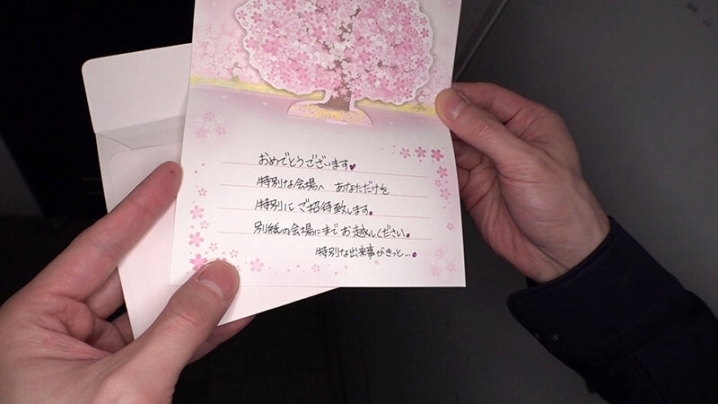 おめでとうございます♥
特別な会場へ あなただけを
特別にご招待致します。
別紙の会場にまでお越しください。
特別な出来事がきっと…♥